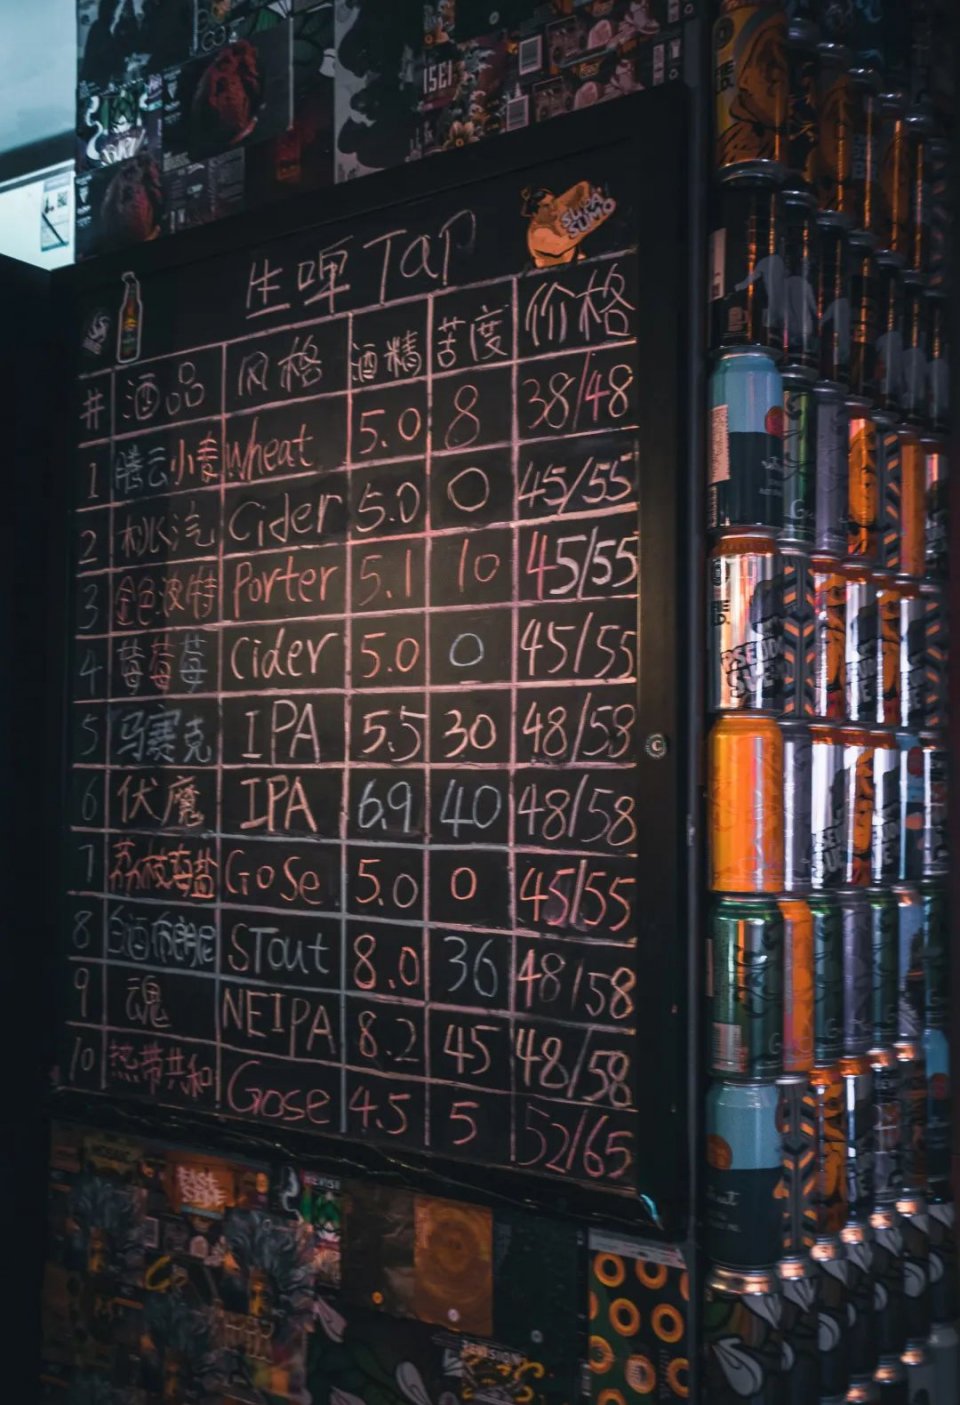 生啤 Tap
SUPA
SUMO
# 酒品 风格 酒精 苦度 价格
1 腾云小麦 Wheat 5.0 8 38/48
2 Cider 5.0 0 45/55
3 金色波特 Porter 5.1 10 45/55
4 莓莓莓 Cider 5.0 0 45/55
5 马赛克 IPA 5.5 30 48/58
6 伏魔 IPA 6.9 40 48/58
7 荔枝海盐 Gose 5.0 0 45/55
8 白酒布朗尼 STout 8.0 36 48/58
9 魂 NEIPA 8.2 45 48/58
10 热带共和 Gose 4.5 5 52/65
PSEUDO
SUE